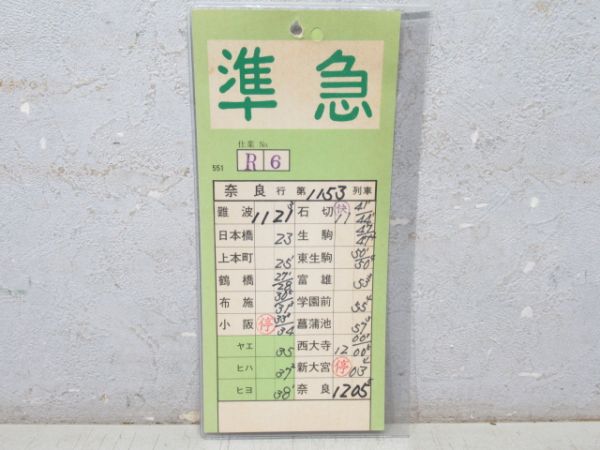 準急
仕業 No.
551 R 6
奈良 行 第 1153 列車
難波 1121 石切 快 11
日本橋 23 生駒
上本町 25 東生駒
鶴橋 富雄 53
布施 学園前 55
小阪 停 34 菖蒲池 57
ヤエ 35 西大寺 12 00
ヒハ 37 新大宮 停 03
ヒヨ 38 奈良 1205